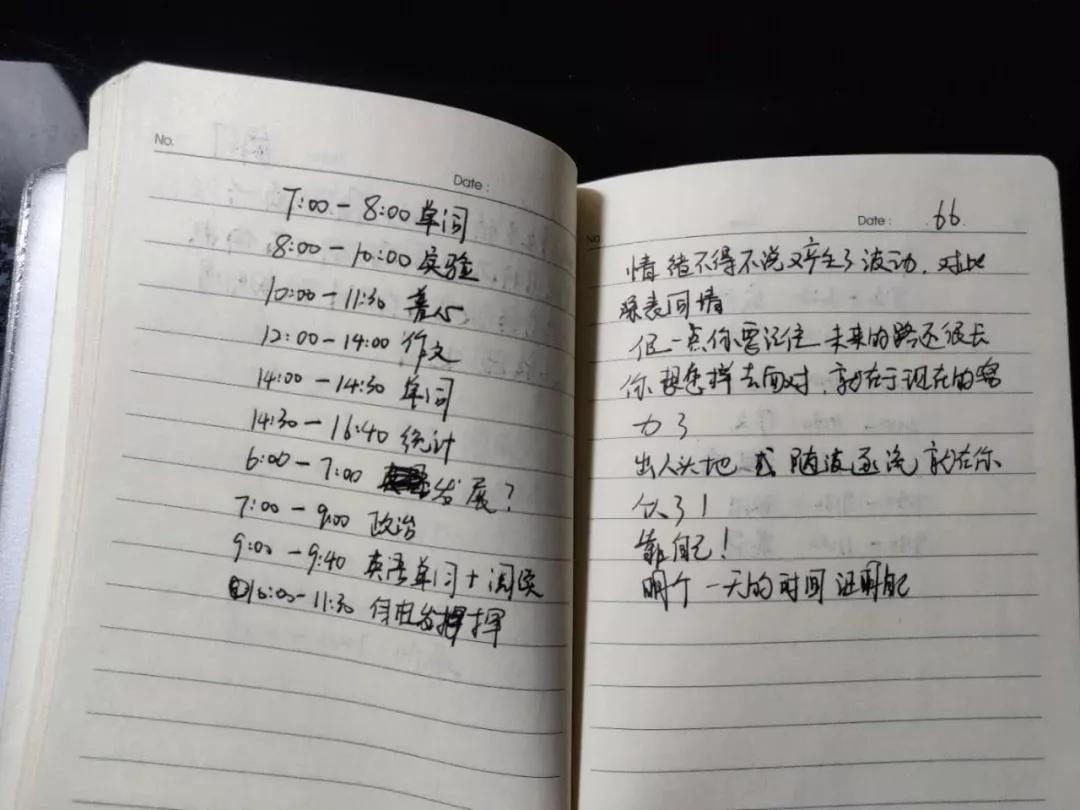 No.
Date :
7:00 - 8:00 单词
8:00 - 10:00 实验
10:00 - 11:30 普心
12:00 - 14:00 作文
14:00 - 14:30 单词
14:30 - 16:40 统计
6:00 - 7:00 发展?
7:00 - 9:00 政治
9:00 - 9:40 英语单词 + 阅读
10:00 - 11:30 自由发挥
No.
Date : 66
情绪不得不说又产生了波动.对此
深表同情
但一点你要记住 未来的路还很长
你想怎样去面对,就在于现在的努
力了
出人头地 或 随波逐流 就在你
了!
靠自己!
明个 一天的时间 证明